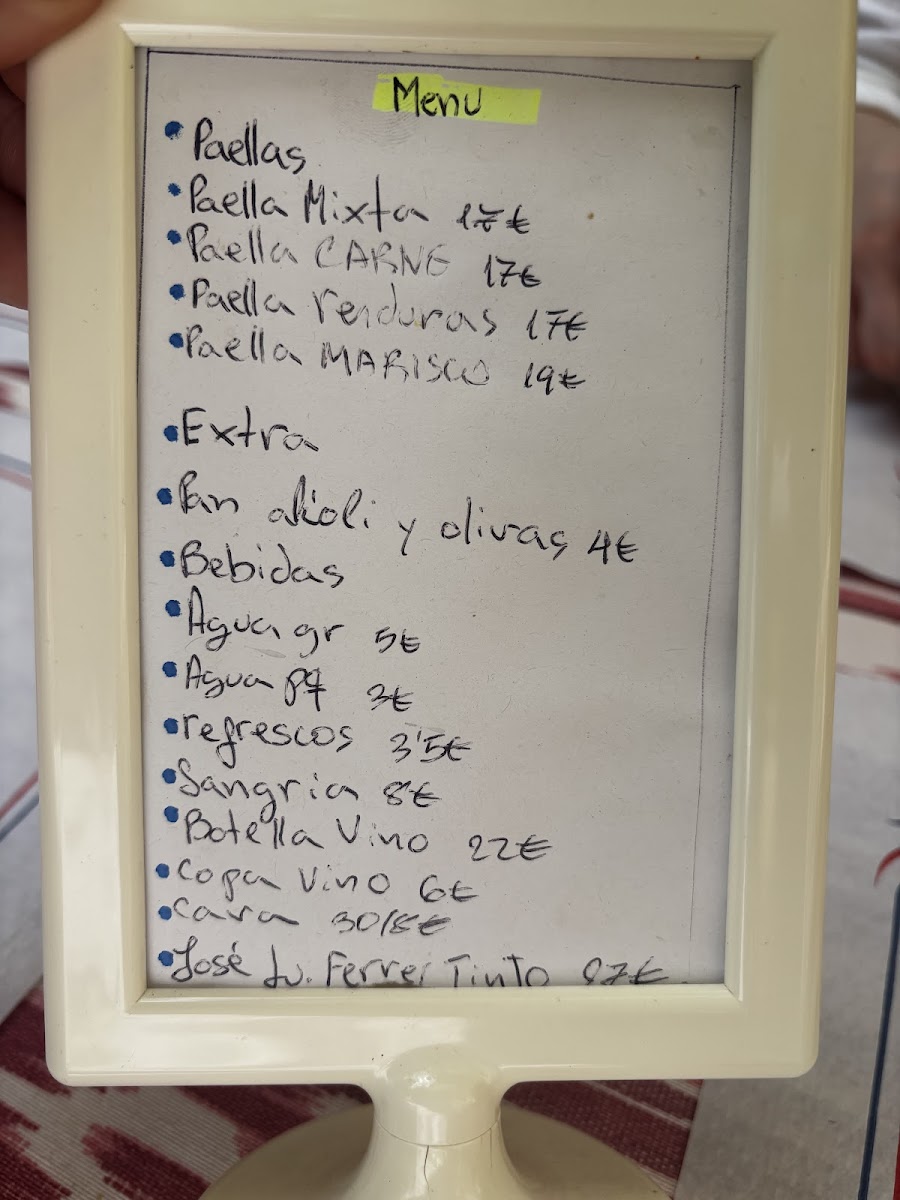 Menu
Paellas
Paella Mixta 17€
Paella CARNE 17€
Paella Verduras 17€
Paella MARISCO 19€
Extra
Pan alioli y olivas 4€
Bebidas
Agua gr 5€
Agua pq 3€
refrescos 3'5€
Sangria 8€
Botella Vino 22€
Copa Vino 6€
Cava 30/8€
José Lu. Ferrer Tinto